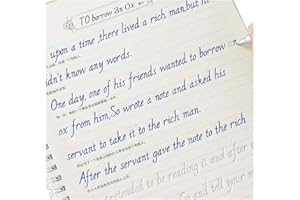 TO borrow an Ox
upon a time, there lived a rich man, but h
dn't know any words.
One day, one of his friends wanted to borrow an
ox from him, So wrote a note and asked his
servant to take it to the rich man.
After the servant gave the note to the rich
pretended to be reading it and
Go and tell your m